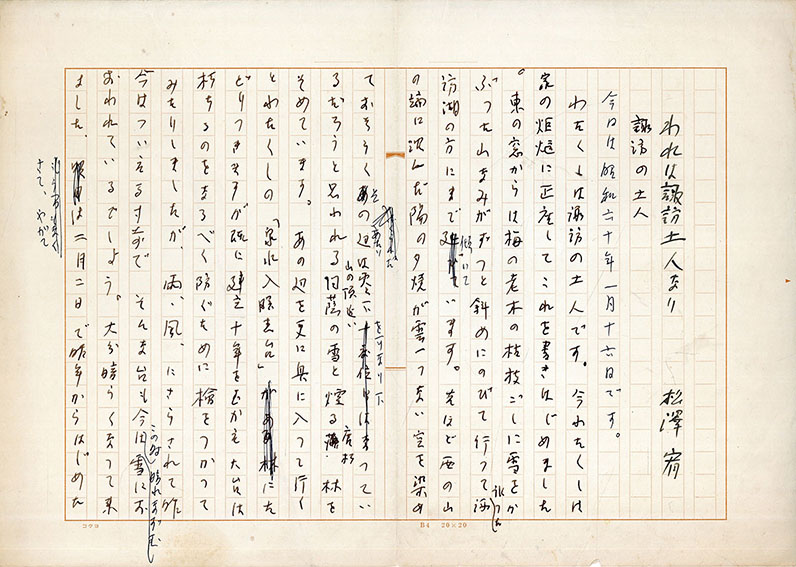 われは諏訪土人なり　松澤宥
諏訪の土人
今日は昭和六十年一月十六日です。
わたくしは諏訪の土人です。今わたくしは
家の炬燵に正座してこれを書きはじめました
。東の窓からは梅の老木の枯枝ごしに雪をか
ぶった山なみがずっと斜めにのびて行って諏
訪湖の方にまで傾いています。先ほど西の山
の端に沈んだ陽の夕焼が雲一つない空を染め
ておそらくあの辺は零下
山の頂近い
をすまり下
るだろうと思われる日蔭の雪と煙る唐松林を
そめています。あの辺を更に奥に入って行く
とわたくしの「泉水入瞑想台」がある林にた
どりつきますが既に建立十年をむかえ大台は
朽ちるのをなるべく防ぐために檜をつかって
みたりしましたが、雨、風、にさらされて昨
今はついえるすなで そんな台も今日雪にお
おわれているでしょう。大分暗らくなって来
ました。
さて、やがて
は二月二日で昨年からはじめた
コクヨ
B4 20×20